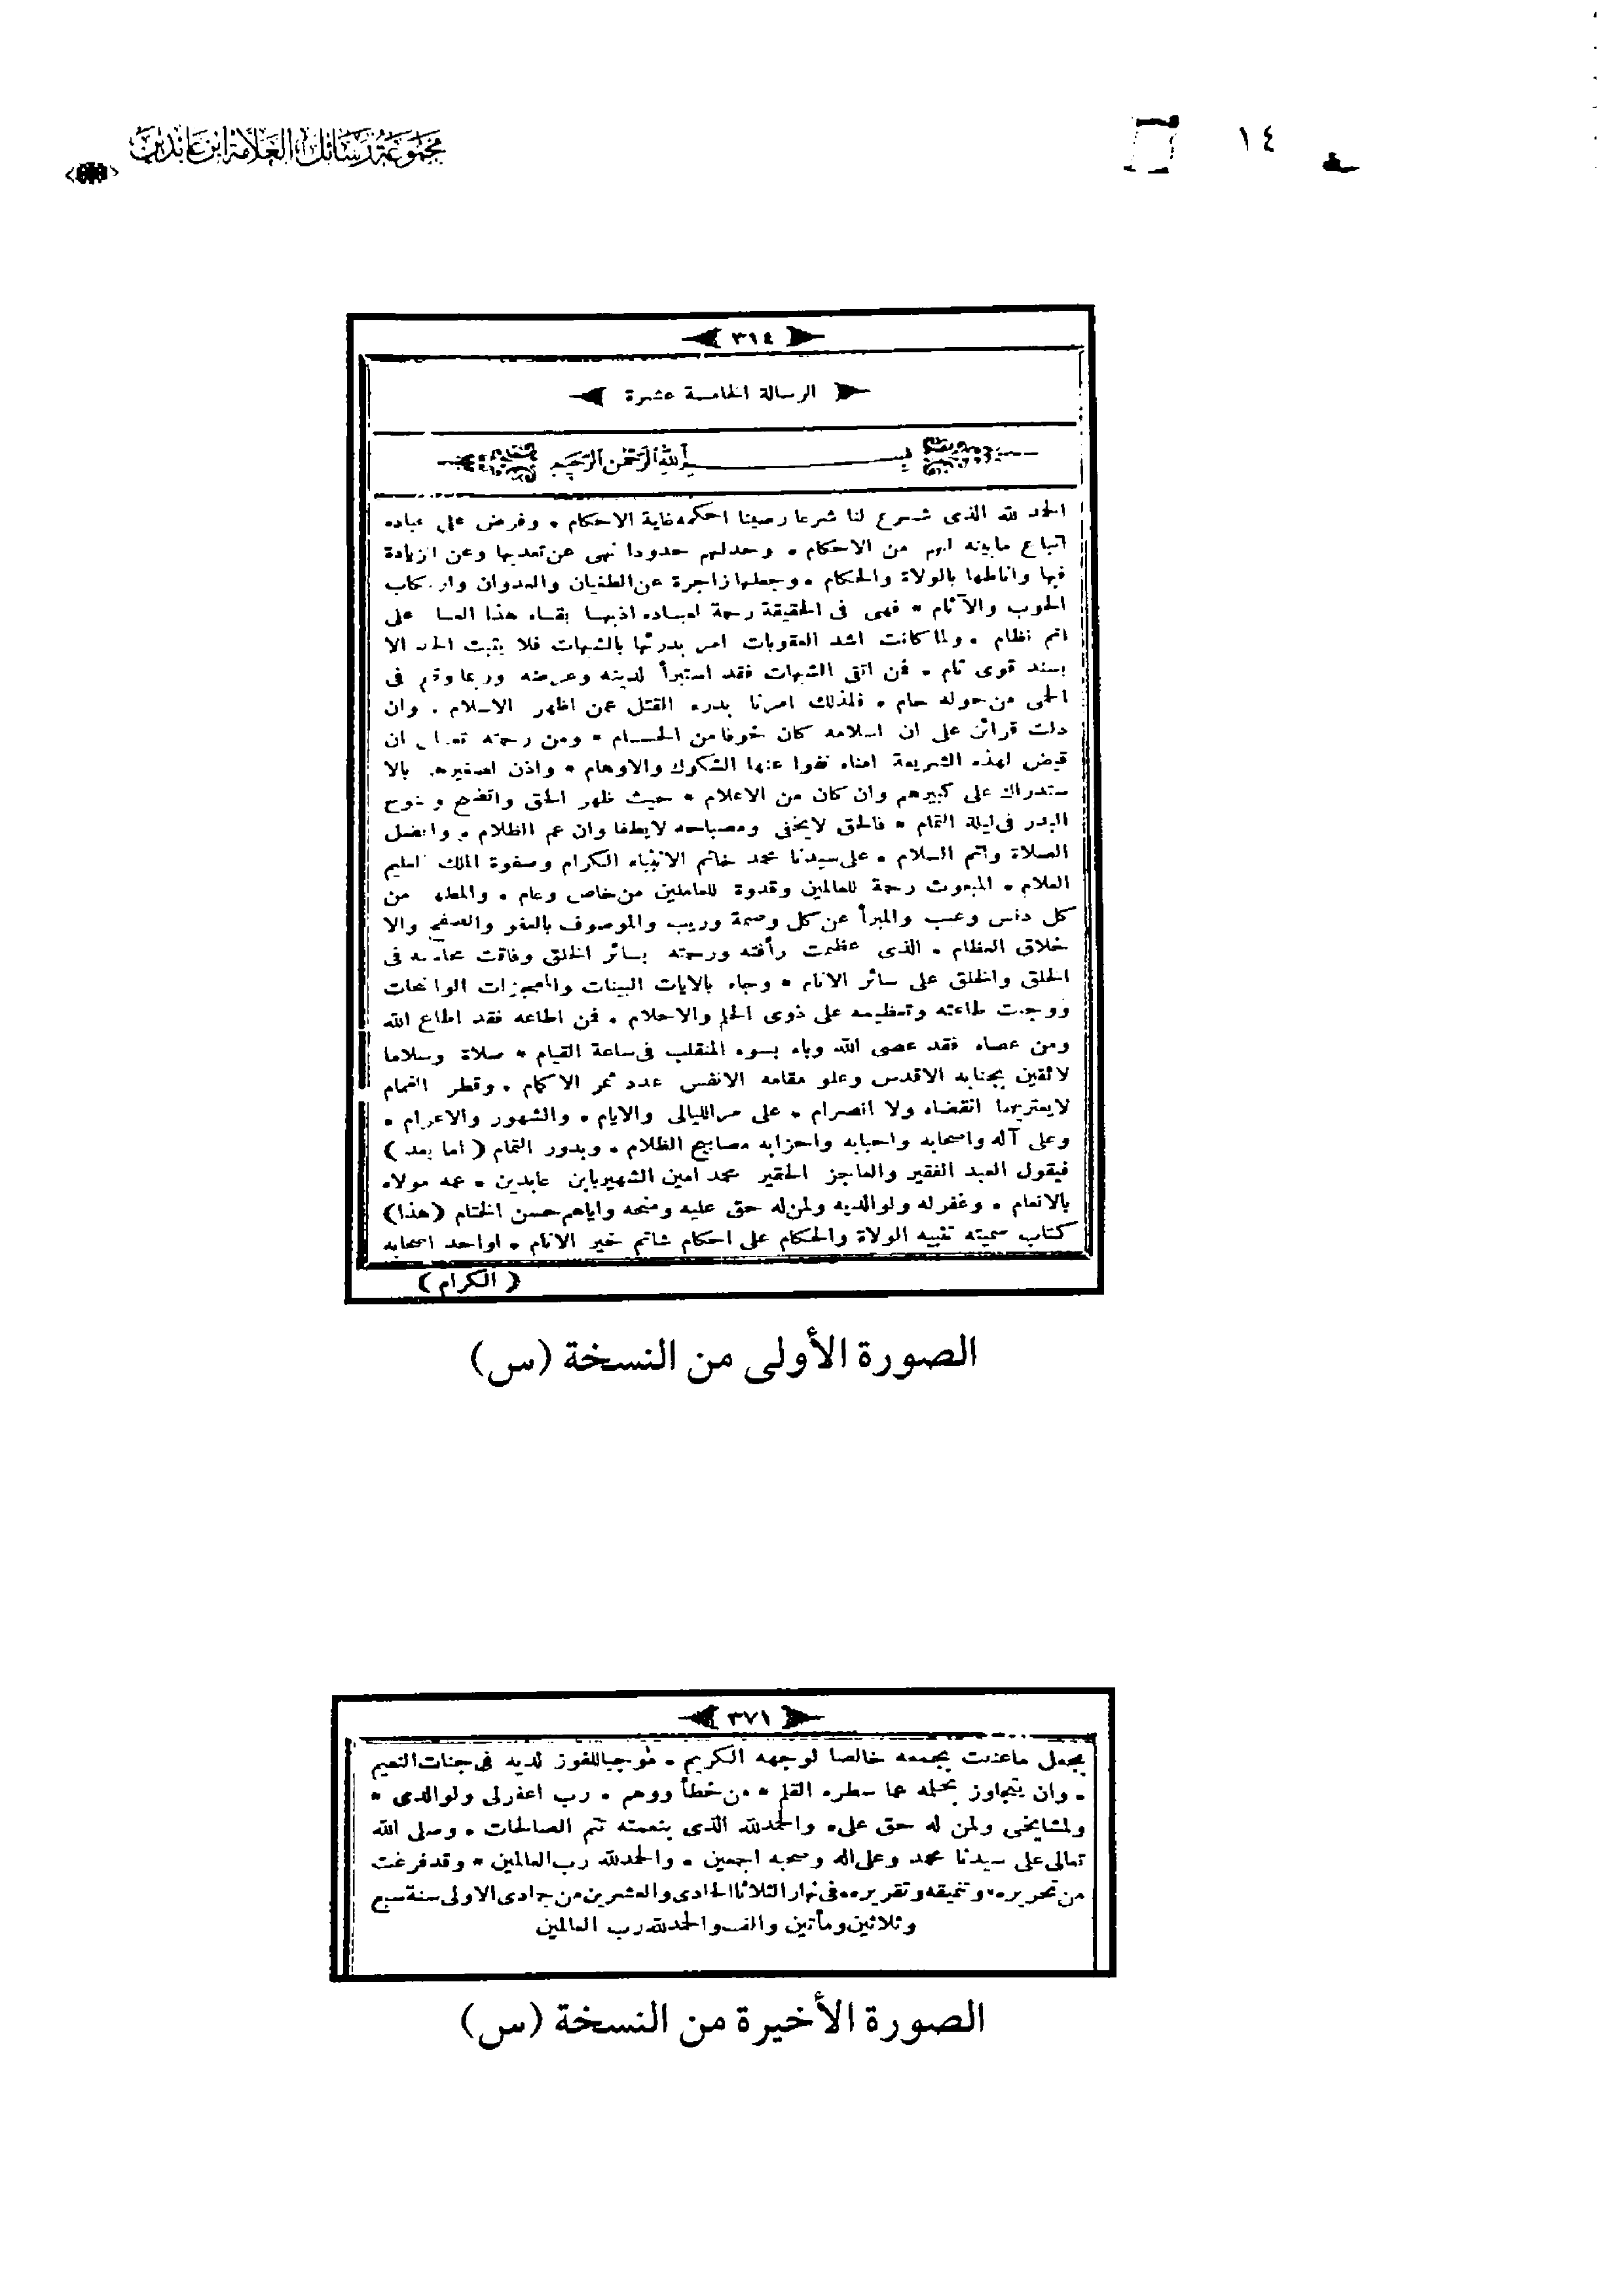 ١٤
مجموعة رسائل العلامة ابن عابدين
٣١٤
الرسالة الخامسة عشرة
بسم الله الرحمن الرحيم
الحمد لله الذى شرع لنا شرعا رصينا احكمه غاية الاحكام * وفرض على عباده
اتباع مابينه لهم من الاحكام * وحدلهم حدودا نهى عن تعديها وعن الزيادة
فيها واناطها بالولاة والحكام * وجعلها زاجرة عن الطغيان والعدوان وارتكاب
الحوب والآثام * فهى فى الحقيقة رحمة لعباده اذبها بقاء هذا العا على
اتم نظام * ولما كانت اشد العقوبات امر بدرئها بالشبهات فلا يثبت الحد الا
بسند قوى تام * فمن اتقى الشبهات فقد استبرأ لدينه وعرضه وربما وقع فى
الحمى من حوله حام * فلذلك امرنا بدرء القتل عمن اظهر الاسلام * وان
دلت قرائن على ان اسلامه كان خوفا من الحسام * ومن رحمته تعالى ان
قيض لهذه الشريعة امناء نفوا عنها الشكوك والاوهام * واذن لصغيرهم بالا
ستدراك على كبيرهم وان كان من الاعلام * حيث ظهر الحق واتضح وضوح
البدر فى ليلة التمام * فالحق لايخفى ومصباحه لايطفا وان عم الظلام * وافضل
الصلاة واتم السلام * على سيدنا محمد خاتم الانبياء الكرام وصفوة الملك العليم
العلام * المبعوث رحمة للعالمين وقدوة للعاملين من خاص وعام * والمطهر من
كل دنس وعيب والمبرأ عن كل وصمة وريب والموصوف بالعفو والصفح والا
خلاق العظام * الذى عظمت رأفته ورحمته بسائر الخلق وفاقت محاسنه فى
الخلق والخلق على سائر الانام * وجاء بالايات البينات والمعجزات الواضحات
ووجبت طاعته وتعظيمه على ذوى الحلم والاحلام * فمن اطاعه فقد اطاع الله
ومن عصاه فقد عصى الله وباء بسوء المنقلب فى ساعة القيام * صلاة وسلاما
لائقين بجنابه الاقدس وعلو مقامه الانفس عدد ثمر الاكمام * وقطر الغمام
لايعتريهما انقضاء ولا انصرام * على مر الليالى والايام * والشهور والاعوام *
وعلى آله واصحابه واحبابه واحزابه مصابيح الظلام * وبدور التمام ( اما بعد )
فيقول العبد الفقير والعاجز الحقير محمد امين الشهير بابن عابدين * عمه مولاه
بالانعام * وغفر له ولوالديه ولمن له حق عليه ومنحه واياهم حسن الختام ( هذا )
كتاب سميته تنبيه الولاة والحكام على احكام شاتم خير الانام * او احد اصحابه
( الكرام )
الصورة الأولى من النسخة (س)
٣٧١
يجعل ماعنيت بجمعه خالصا لوجهه الكريم * موجبا للفوز لديه فى جنات النعيم
* وان يتجاوز بحلمه عما سطره القلم * من خطأ ووهم * رب اغفرلى ولوالدى *
ولمشايخى ولمن له حق على * والحمدلله الذى بنعمته تتم الصالحات * وصلى الله
تعالى على سيدنا محمد وعلى اله وصحبه اجمعين * والحمدلله رب العالمين * وقد فرغت
من تحريره * وتنميقه وتقريره * فى نهار الثلاثا الحادى والعشرين من جادى الاولى سنة سبع
وثلاثين ومأتين والف والحمدلله رب العالمين
الصورة الأخيرة من النسخة (س)